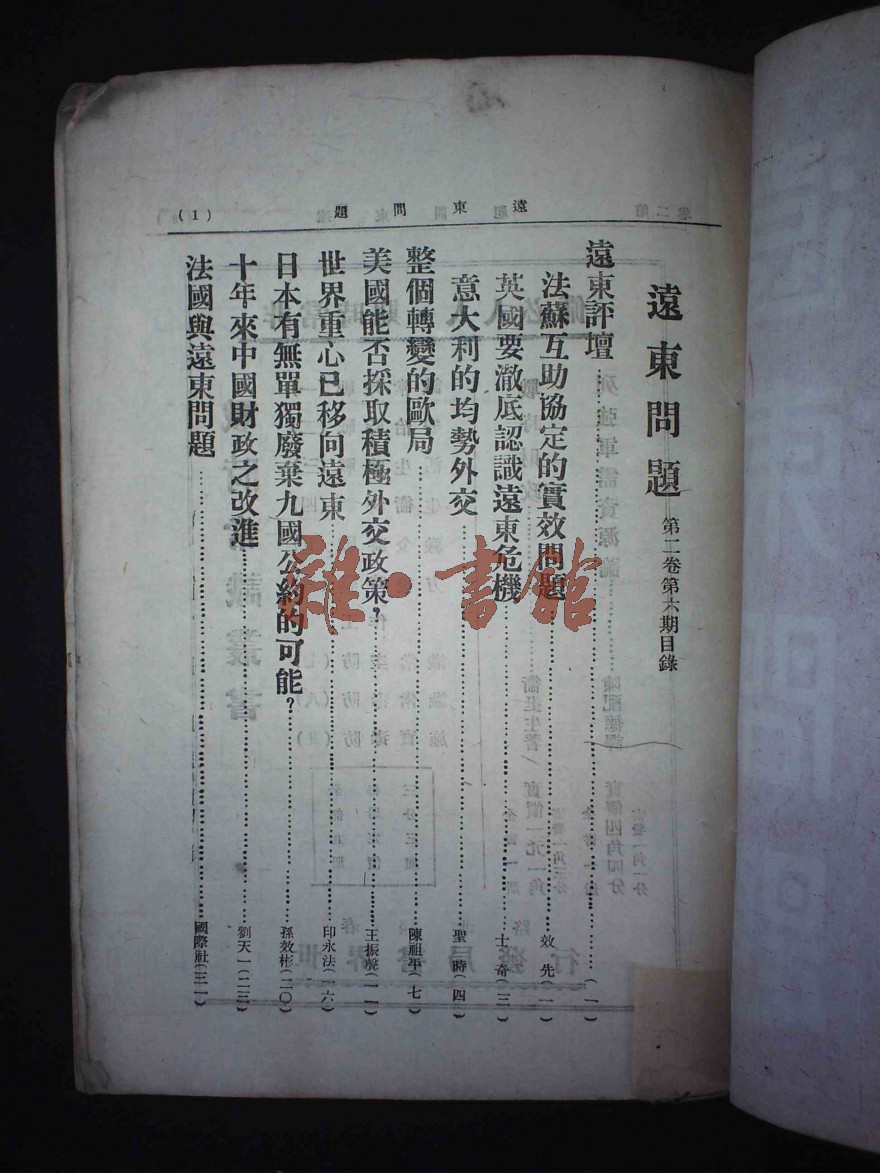 遠東問題
(1)
遠東問題 第二卷第六期目錄
遠東評壇……(一)
法蘇互助協定的實效問題……效先(一)
英國要澈底認識遠東危機……士奇(三)
意大利的均勢外交……聖時(四)
整個轉變的歐局……陳祖平(七)
美國能否採取積極外交政策?……王振聲(一一)
世界重心已移向遠東……印永法(一六)
日本有無單獨廢棄九國公約的可能?……孫效彬(二〇)
十年來中國財政之改進……劉天一(二三)
法國與遠東問題……國際社(三一)
雜·書館